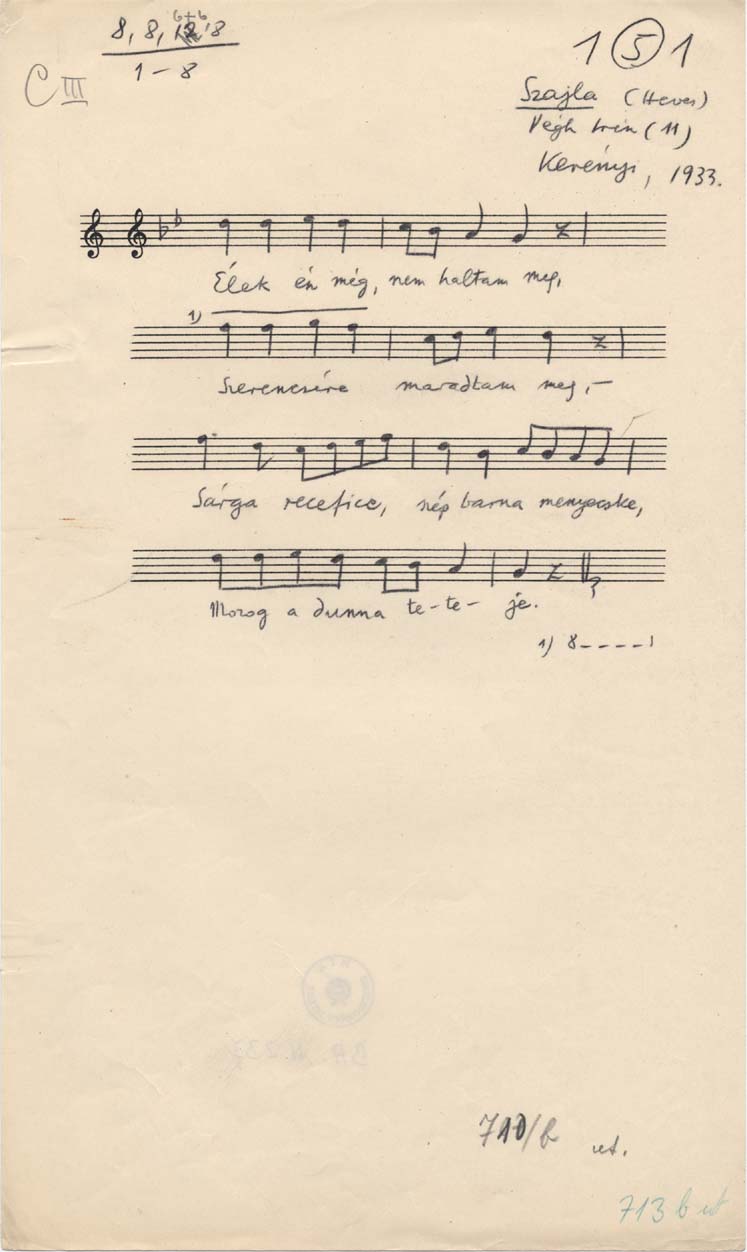 6+6
8, 8, 12, 8
1 – 8
C III
1 5 1
Szajla (Heves)
Végh Irén (11)
Kerényi, 1933.
Élek én még, nem haltam meg,
1)
Szerencsére maradtam meg, –
Sárga recefice, szép barna menyecske,
Mozog a dunna te-te- je.
1) 8-----
710/b ut.
713 b ut